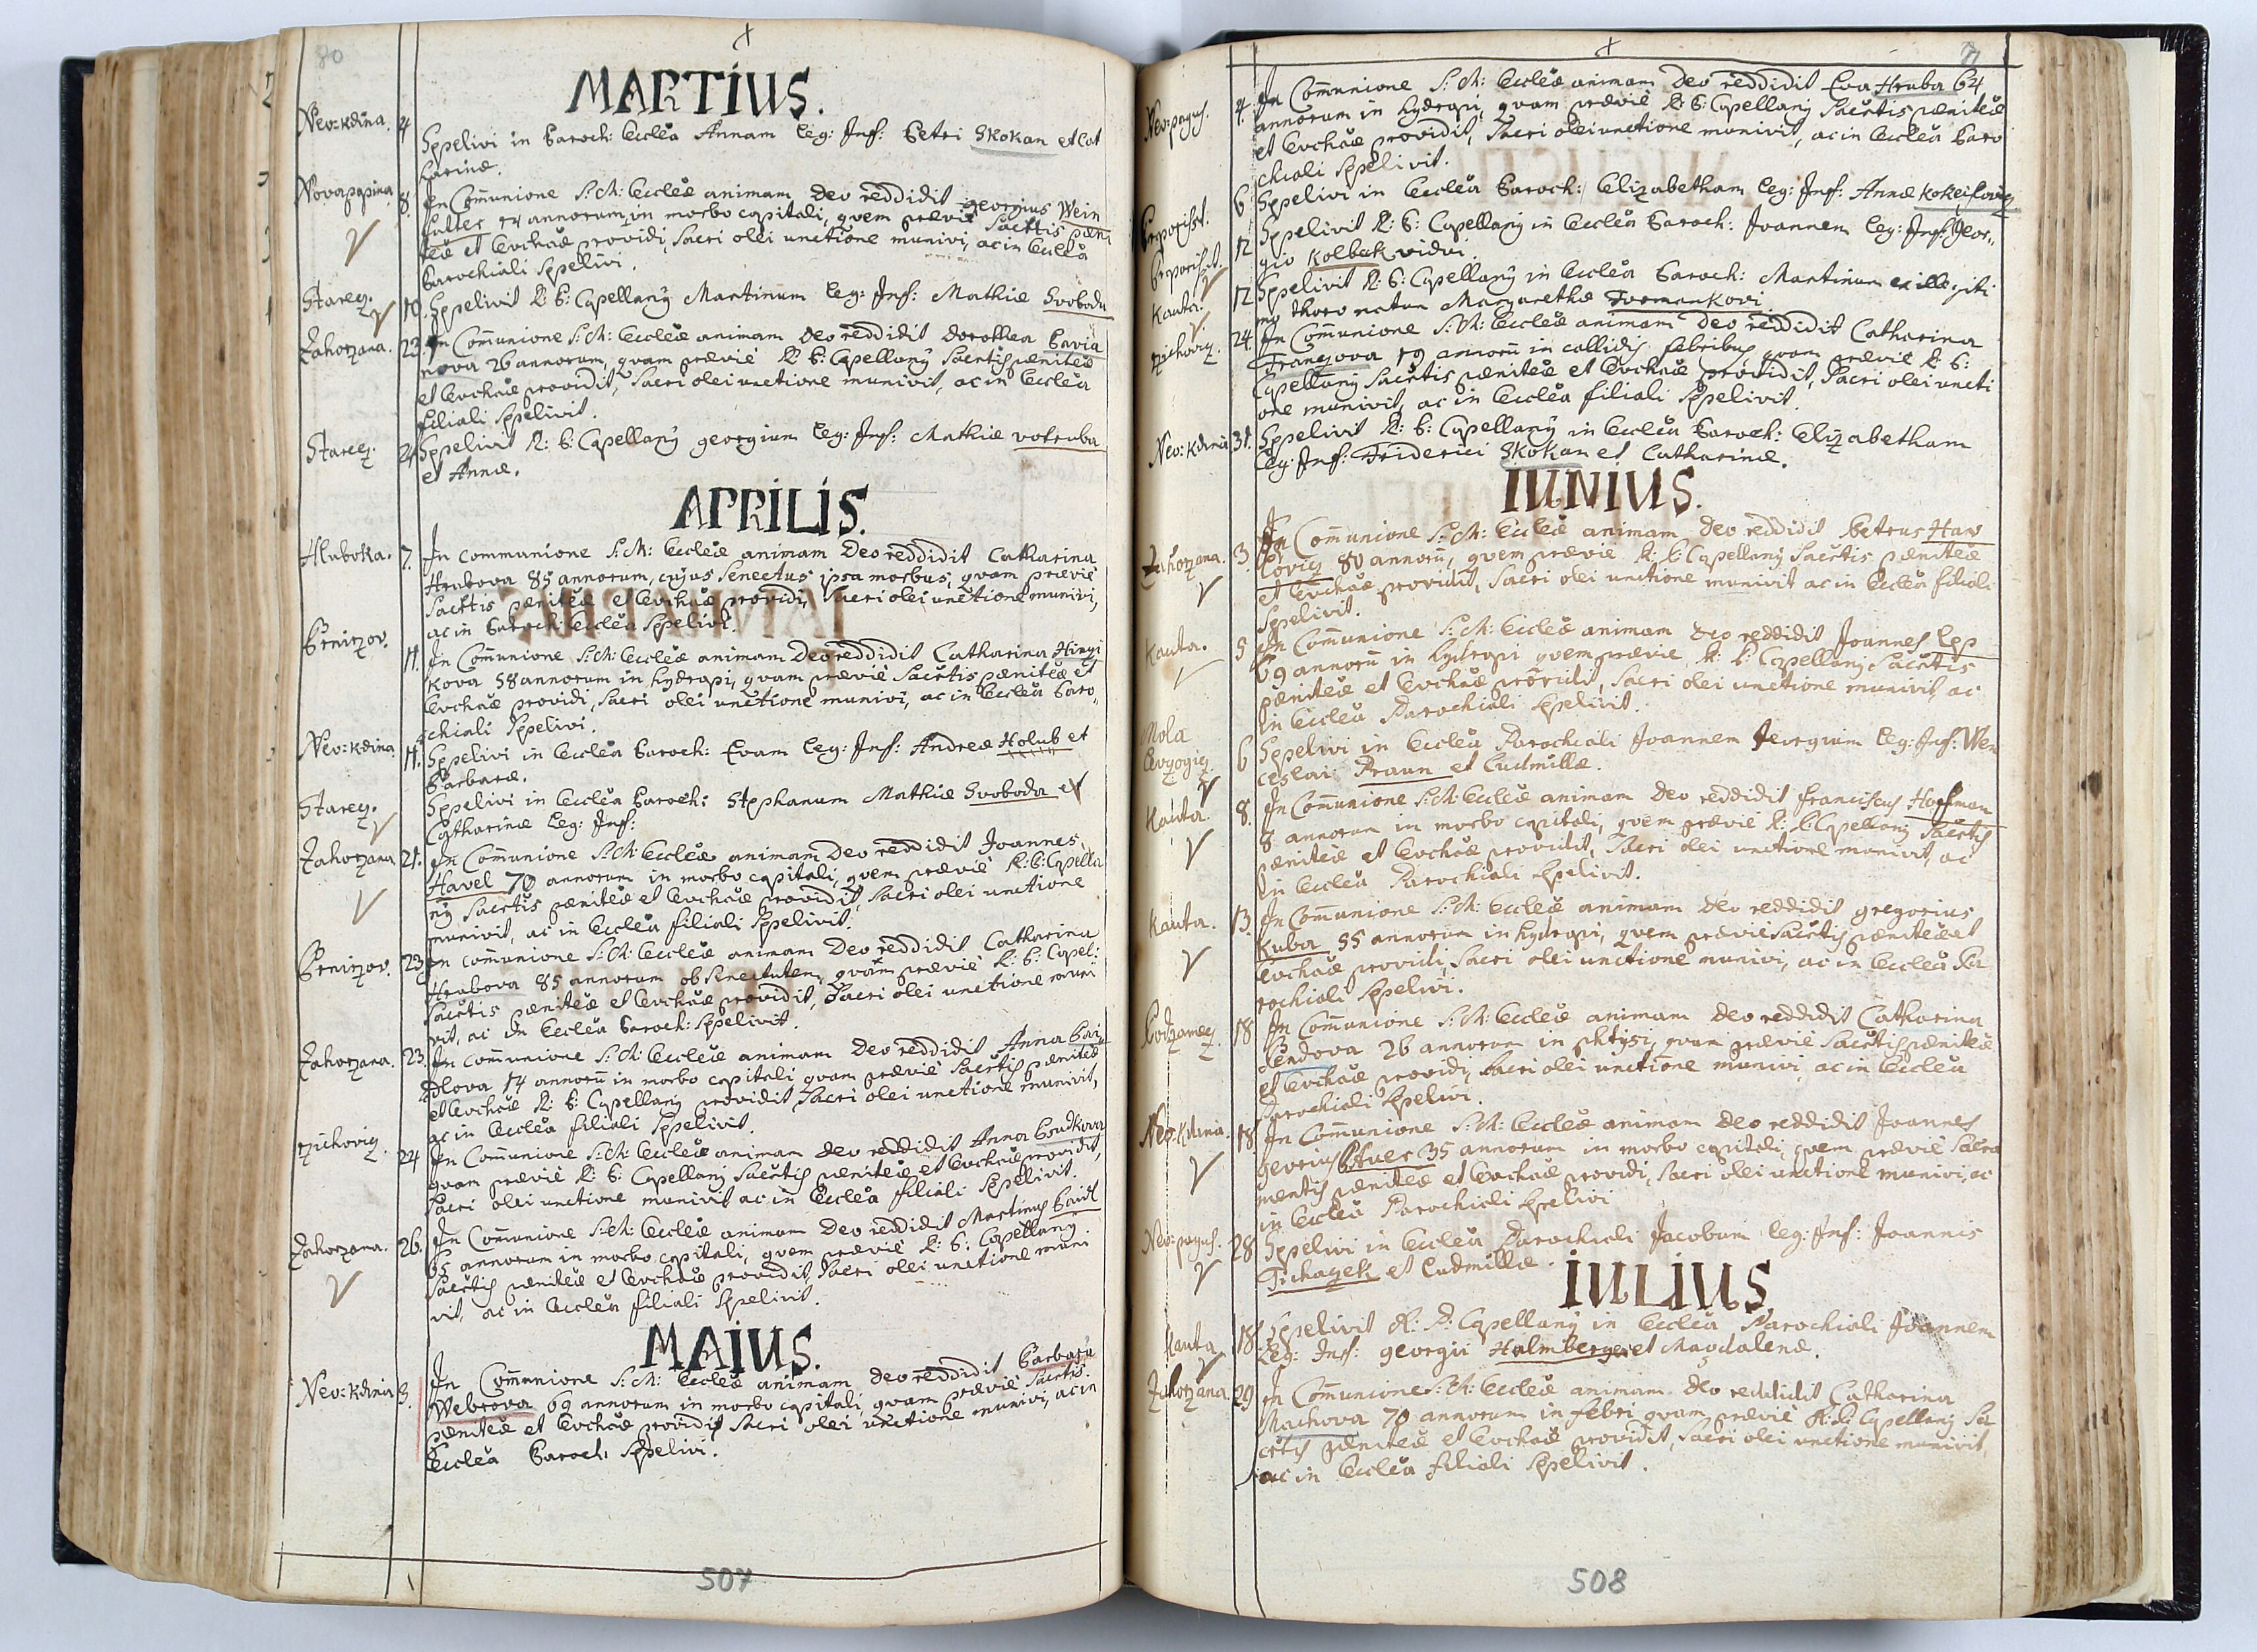 80
MARTIUS.
Neo:Kdina. 4 Sepelivi in Paroch: Ecclea Annam leg: Inf: Petri Skokan et Cat
harinæ.
8. In Communione S: M: Eccleæ animam Deo reddidit georgius Wein
14 annorum in morbo capitali, quem prævie Sacrtis pæni
teæ et Evchæ providi, Sacri olei unctione munivi, ac in Ecclea
Parochiali Sepelivi.
Starecz. 10. Sepelivit R: P: Capellang Martinum leg: Inf: Mathiæ Svoboda
Zahorzana. 23. In Communione S: M: Eccleæ animam Deo reddidit Dorothea Pavia
nova 26 annorum, quam prævie R: P: Capellang Sacrtis pæniteæ
et Evchæ providit, Sacri olei unctione munivit, ac in Ecclea
filiali Sepelivit.
Starecz. Sepelivit R: P: Capellang georgium leg: Inf: Mathiæ votruba
et Annæ.
APRILIS.
Hluboka. 7. In communione S: M: Eccleæ animam Deo reddidit Catharina
Hrubova 85 annorum, cujus Senectus ipsa morbus, quam prævie
Sacrtis pæniteæ et Evchæ providi, Sacri olei unctione munivi,
ac in Paroch: Ecclea Sepelivi.
Prnirzov. 11. In Communione S: M: Eccleæ animam Deo reddidit Catharina
kova 58 annorum in hydropi, quam prævie Sacrtis pæniteæ et
Evchæ providi, Sacri olei unctione munivi, ac in Ecclea Paro,
chiali Sepelivi.
Neo:Kdina 11. Sepelivi in Ecclea Paroch: Evam leg: Inf: Andreæ Holub et
Barbaræ.
Starecz. Sepelivi in Ecclea Paroch: Stephanum Mathiæ Svoboda et
Catharinæ leg: Inf:
Zahorzana 21. In Communione S: M: Eccleæ animam Deo reddidit Joannes
Havel 70 annorum in morbo capitali, quem prævie R: P: Capella
ng Sacrtis pæniteæ et Evchæ providit, Sacri olei unctione
munivit, ac in Ecclea filiali Sepelivit.
Prnirzov. 23. In communione S: M: Eccleæ animam Deo reddidit Catharina
Hrubova 85 annorum ob Senectutem, quam prævie R: P: Capel:
Sacrtis pæniteæ et Evchæ providit, Sacri olei unctione muni
vit, ac in Ecclea Paroch: Sepelivit.
Zahorzana. 23. In communione S: M: Eccleæ animam Deo reddidit Anna
dlova 14 annorū in morbo capitali quam prævie Sacrtis pæniteæ
et Evchæ R: P: Capellang providit Sacri olei unctione munivit,
ac in Ecclea filiali Sepelivit.
rzichovicz. 24 In Communione S: M: Eccleæ animam Deo reddidit Anna Boudkova
quam prævie R: P: Capellang Sacrtis pæniteæ et Evchæ providit,
Sacri olei unctione munivit ac in Ecclea filiali Sepelivit.
Zahorzana. 26. In Communione S: M: Eccleæ animam Deo reddidit Martinus
65 annorum in morbo capitali, quem prævie R: P: Capellang
Sacrtis pæniteæ et Evchæ providit, Sacri olei unctione muni
vit, ac in Ecclea filiali Sepelivit.
MAIUS.
Neo:Kdina 3. In Communione S: M: Eccleæ animam Deo reddidit Barbara
Webrova 69 annorum in morbo capitali, quam prævie Sacrtis
pæniteæ et Evchæ providi Sacri olei unctione munivi, ac in
Ecclea Paroch: Sepelivi.
507
Neo:pagus. 4. In Communione S: M: Eccleæ animam Deo reddidit Eva Hruba 64
annorum in hydropi, quam prævie R: P: Capellang Sacrtis pæniteæ
et Evchæ providit, Sacri olei unctione munivit, ac in Ecclea Paro
chiali Sepelivit.
6 Sepelivi in Ecclea Paroch: Elizabetham leg: Inf: Annæ
12 Sepelivit R: P: Capellang in Ecclea Paroch: Joannem leg: Inf: Geor,,
gio Kolbek vidvi.
Kauta. 12 Sepelivit R: P: Capellang in Ecclea Paroch: Martinum ex illegiti
mo thoro natum Margarethæ
rzichovicz. 24 In Communione S: M: Eccleæ animam Deo reddidit Catharina
19 annorū in callidis febribus, quam prævie R: P:
Capellang Sacrtis pæniteæ et Evchæ providit, Sacri olei uncti
one munivit, ac in Ecclea filiali Sepelivit.
Neo:Kdina 31. Sepelivit R: P: Capellang in Ecclea Paroch: Elizabetham
leg: Inf: Friderici Skokan et Catharinæ.
IUNIUS.
Zahorzana. 3. In Communione S: M: Eccleæ animam Deo reddidit Petrus Haw
lovicz 80 annorū, quem prævie R: P: Capellang Sacrtis pæniteæ
et Evchæ providit, Sacri olei unctione munivit ac in Ecclea filiali
Sepelivit.
Kauta. 5 In Communione S: M: Eccleæ animam Deo reddidit Joannes Lep
69 annorū in hydropi quem prævie R: P: Capellang Sacrtis
pæniteæ et Evchæ providit, Sacri olei unctione munivit, ac
in Ecclea Parochiali Sepelivit.
Mola 6 Sepelivi in Ecclea Parochiali Joannem Georgium leg: Inf: Wen
ceslai Praun et Ludmillæ.
Kauta. 8. In Communione S: M: Eccleæ animam Deo reddidit Franciscus Hoffman
8 annorum in morbo capitali, quem prævie R: P: Capellang Sacrtis
pæniteæ et Evchæ providit, Sacri olei unctione munivit, ac
in Ecclea Parochiali Sepelivit.
Kauta. 13. In Communione S: M: Eccleæ animam Deo reddidit gregorius
Kuba 55 annorum in hydropi, quem prævie Sacrtis pæniteæ et
Evchæ providi, Sacri olei unctione munivi, ac in Ecclea Pa
rochiali Sepelivi.
18 In Communione S: M: Eccleæ animam Deo reddidit Catharina
26 annorum in phtysi, quam prævie Sacrtis pæniteæ
et Evchæ providi, Sacri olei unctione munivi, ac in Ecclea
Parochiali Sepelivi.
Neo:Kdina. 18 In Communione S: M: Eccleæ animam Deo reddidit Joannes
georius 35 annorum in morbo capitali, quem prævie Sacra
mentis pæniteæ et Evchæ providi, Sacri olei unctione munivi, ac
in Ecclea Parochiali Sepelivi
Neo:pagus. 28 Sepelivi in Ecclea Parochiali Jacobum leg: Inf: Joannis
Tichaczek et Ludmillæ.
IULIUS
Kauta 18. Sepelivit R: P: Capellang in Ecclea Parochiali Joannem
Leg: Inf: georgii Halmberger et Magdalenæ.
Zahorzana 29 In Communione S: M: Eccleæ animam Deo reddidit Catharina
Machova 70 annorum in febri quam prævie R: P: Capellang Sa
crtis pæniteæ et Evchæ providit, Sacri olei unctione munivit,
ac in Ecclea filiali Sepelivit.
508